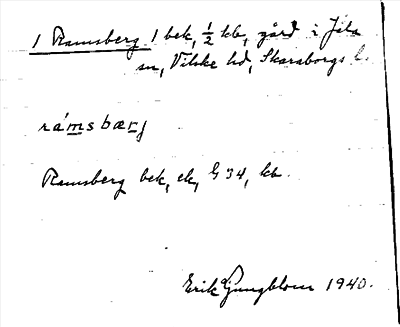 1 Ramsberg 1 bek, 1/2 kb, gård i Jäla
sn, Vilske hd, Skaraborgs l.
rámsbærj
Ramsberg bek, ek, G 34, kb.
Erik Ljungblom 1940.